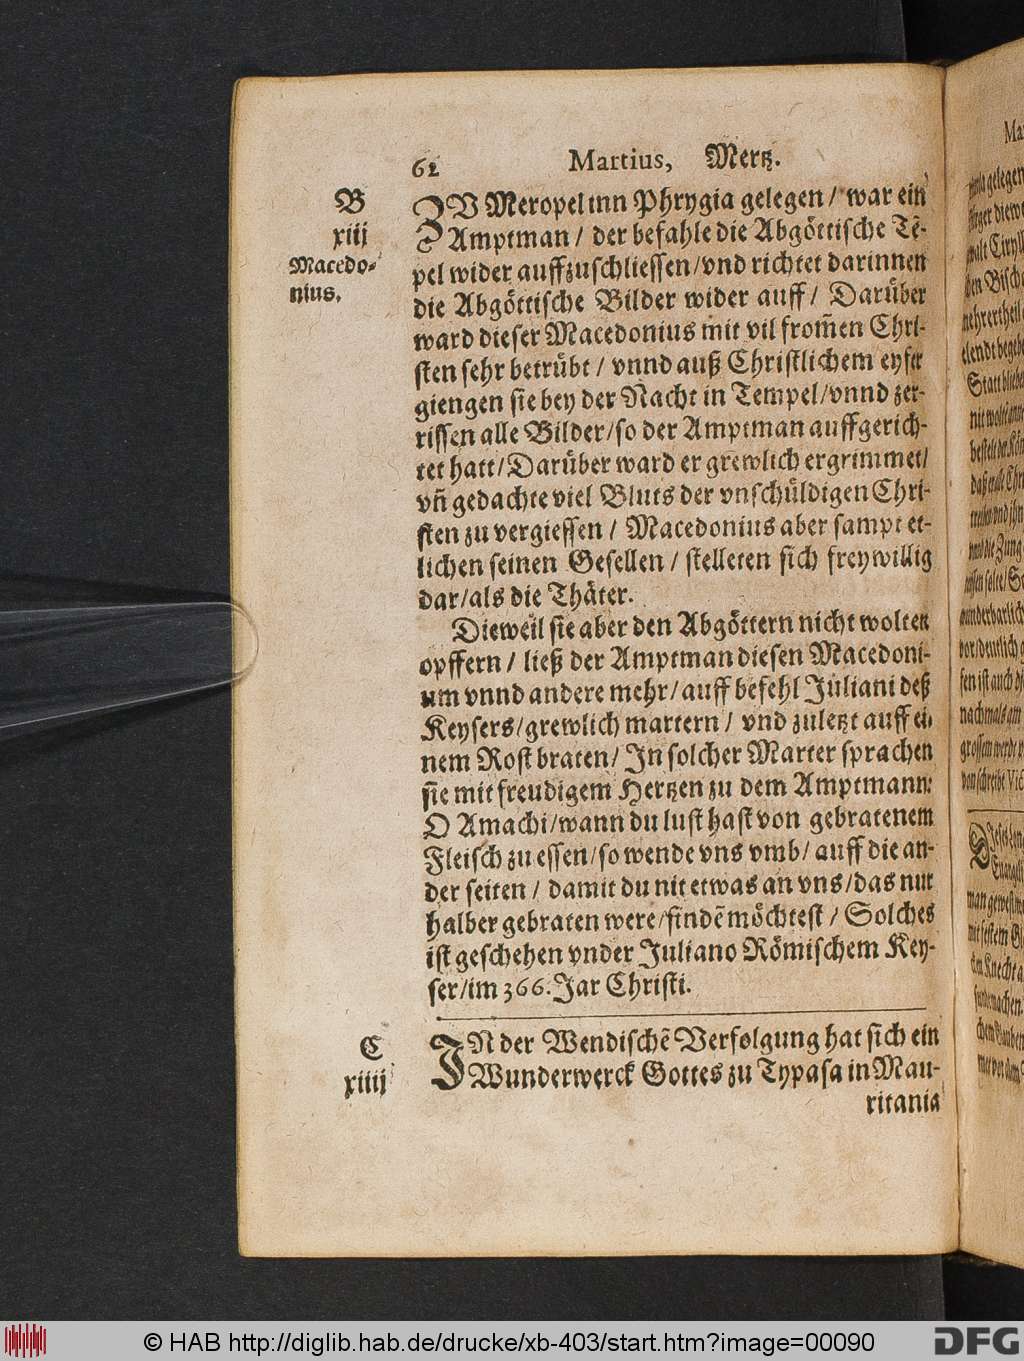 62 Martius, Mertz.
B
xiij
Macedo-
nius.
ZV Meropel inn Phrygia gelegen / war ein
Amptman / der befahle die Abgöttische Tẽ-
pel wider auffzuschliessen / vnd richtet darinnen
die Abgöttische Bilder wider auff / Darüber
ward dieser Macedonius mit vil from̃en Chri-
sten sehr betrübt / vnnd auß Christlichem eyfer
giengen sie bey der Nacht in Tempel / vnnd zer-
rissen alle Bilder / so der Amptman auffgerich-
tet hatt / Darüber ward er grewlich ergrimmet /
vñ gedachte viel Bluts der vnschüldigen Chri-
sten zu vergiessen / Macedonius aber sampt et-
lichen seinen Gesellen / stelleten sich freywillig
dar / als die Thäter.
Dieweil sie aber den Abgöttern nicht wolten
opffern / ließ der Amptman diesen Macedoni-
um vnnd andere mehr / auff befehl Juliani deß
Keysers / grewlich martern / vnd zuletzt auff ei-
nem Rost braten / In solcher Marter sprachen
sie mit freudigem Hertzen zu dem Amptmann:
O Amachi / wann du lust hast von gebratenem
Fleisch zu essen / so wende vns vmb / auff die an-
der seiten / damit du nit etwas an vns / das nur
halber gebraten were / findẽ möchtest / Solches
ist geschehen vnder Juliano Römischem Key-
ser / im 366. Jar Christi.
C
xiiij
IN der Wendischẽ Verfolgung hat sich ein
Wunderwerck Gottes zu Typasa in Mau-
ritania
© HAB http://diglib.hab.de/drucke/xb-403/start.htm?image=00090
DFG